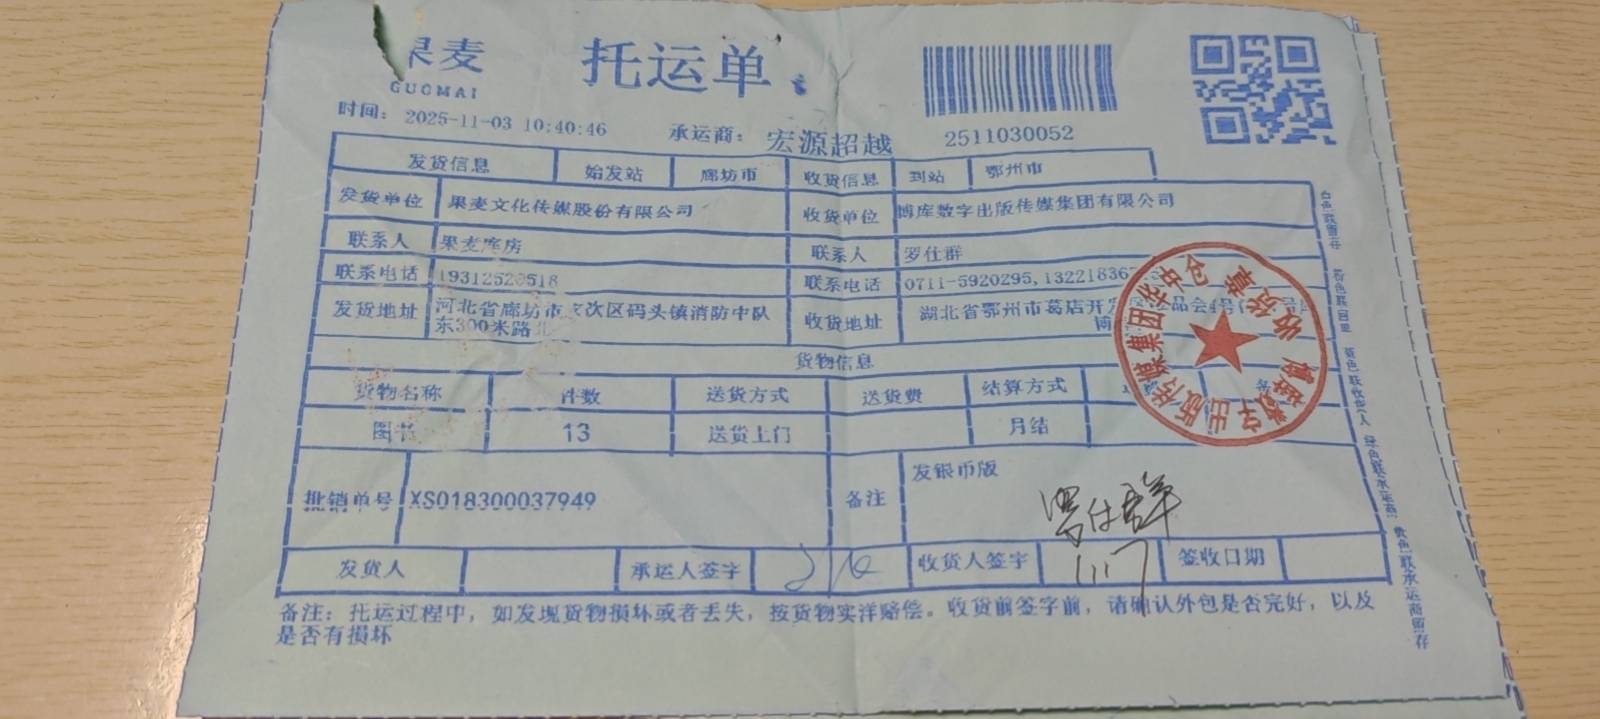 果麦 托运单
GUOMAI
时间: 2025-11-03 10:40:46 承运商: 宏源超越 2511030052
发货信息 始发站 廊坊市 收货信息 到站 鄂州市
发货单位 果麦文化传媒股份有限公司 收货单位 博库数字出版传媒集团有限公司
联系人 果麦库房 联系人 罗仕群
联系电话 联系电话 0711-5920295,
发货地址 河北省廊坊市 次区码头镇消防中队 收货地址 湖北省鄂州市葛店开发区 品会4号
东300米路北 博
货物信息
货物名称 件数 送货方式 送货费 结算方式 备
图书 13 送货上门 月结
批销单号 XS018300037949 备注 发银币版
罗仕群
发货人 承运人签字 收货人签字 11.7 签收日期
备注: 托运过程中, 如发现货物损坏或者丢失, 按货物实洋赔偿。收货前签字前, 请确认外包是否完好, 以及
是否有损坏
数字出版传媒集团华中仓
收货章